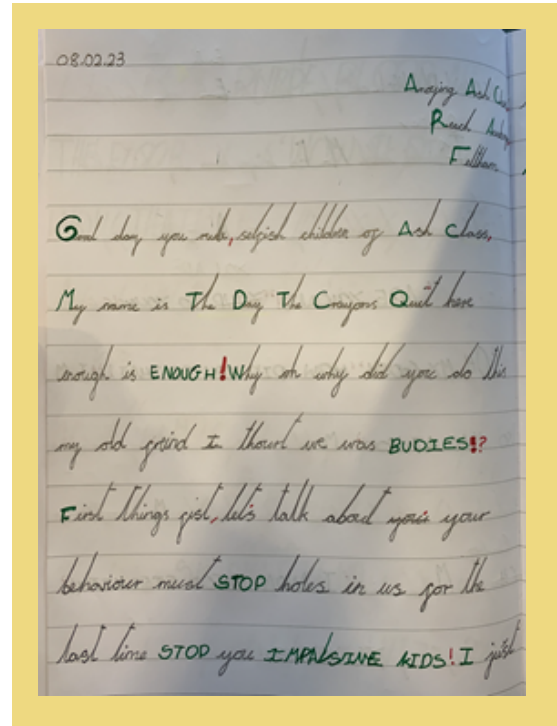 08.02.23
Annoying Ash Class
Reach Academy
Feltham
Good day you rude, selfish children of Ash Class,
My name is The Day The Crayons Quit here
enough is ENOUGH! Why oh why did you do this
my old freind I thourt we was BUDIES!?
First things fist, let's talk about your your
behaviour must STOP holes in us for the
last time STOP you IMPALSINE KIDS! I just